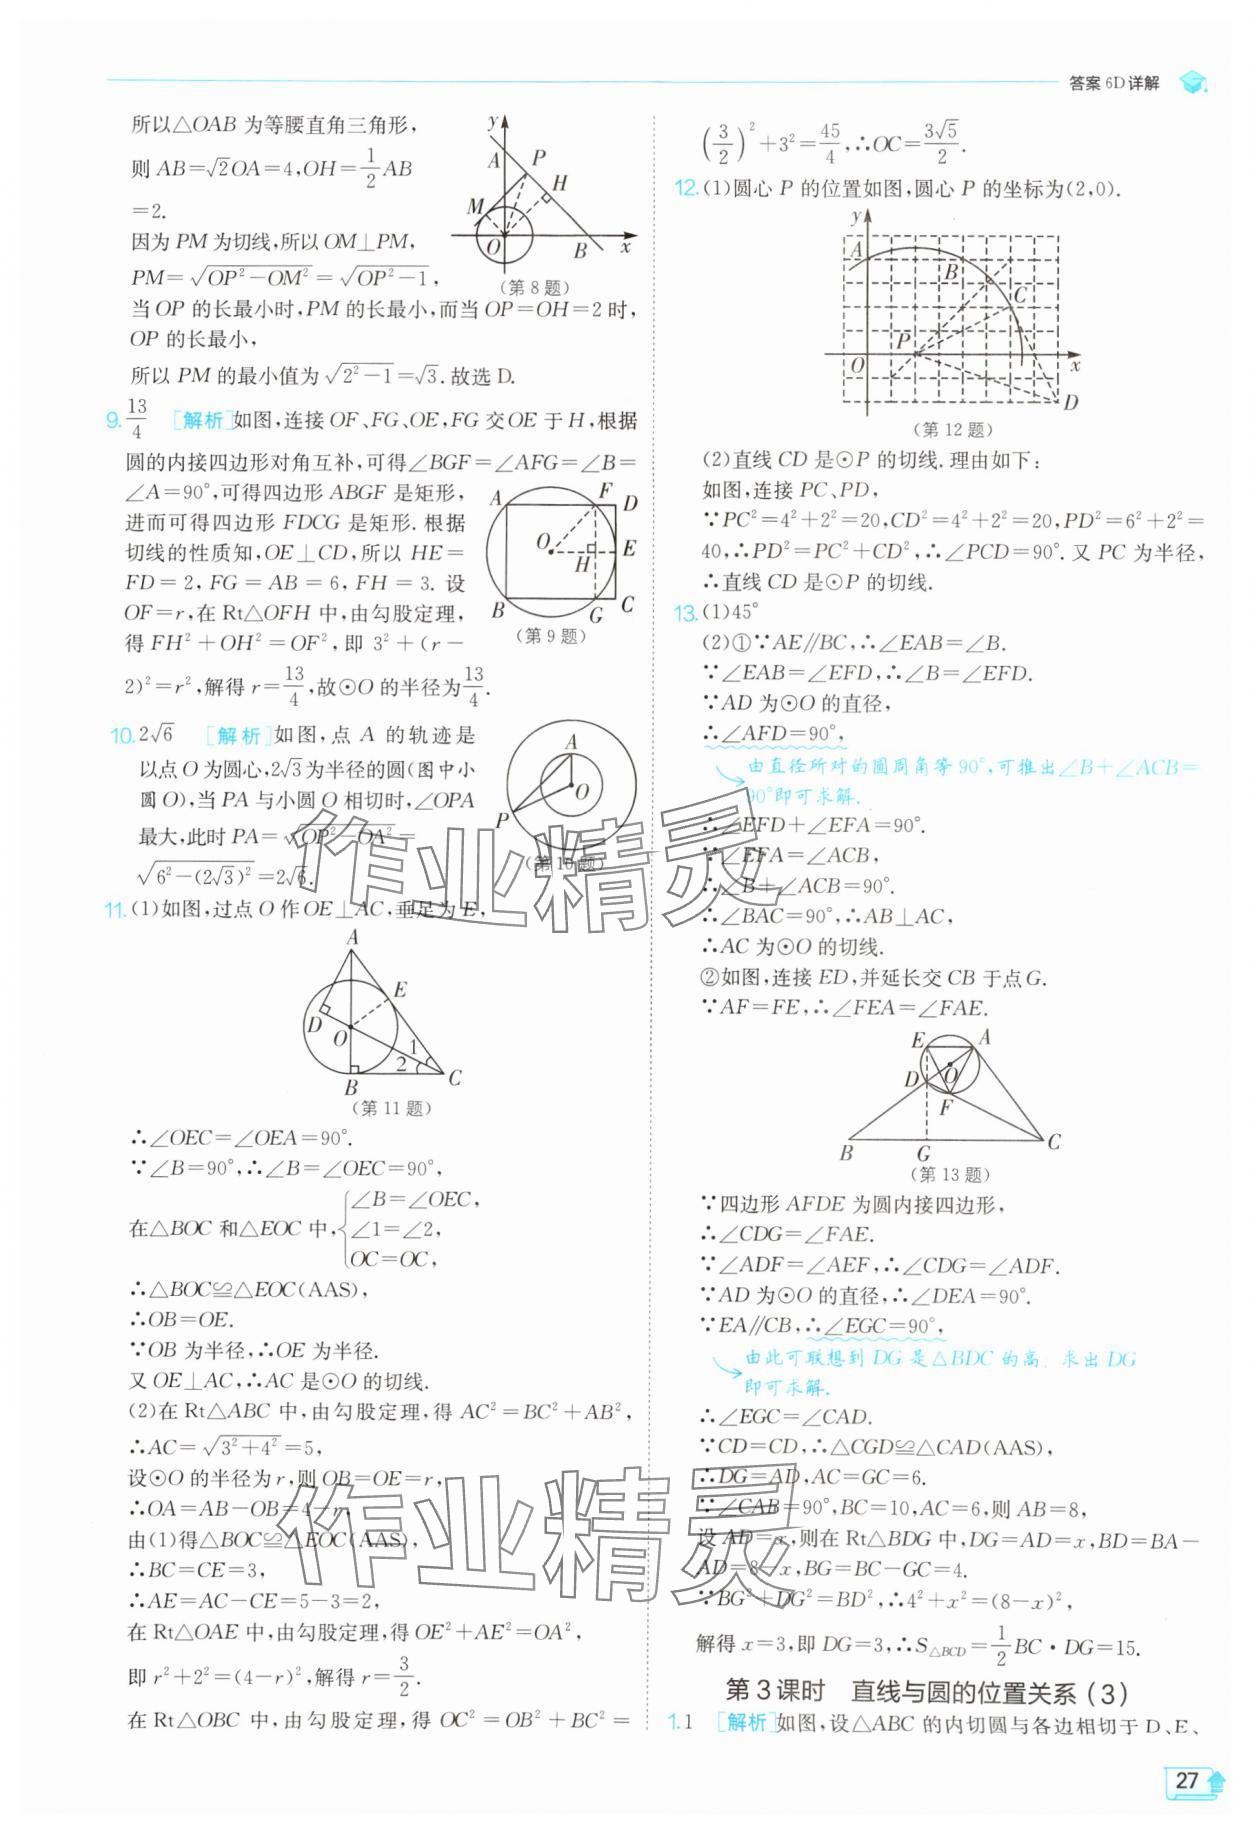 答案 6D 详解
所以△OAB 为等腰直角三角形,
则 AB=√2OA=4,OH=1/2AB
=2.
因为 PM 为切线,所以 OM⊥PM,
PM=√(OP²-OM²)=√(OP²-1),
y
A
P
H
M
O
B
x
(第 8 题)
当 OP 的长最小时,PM 的长最小,而当 OP=OH=2 时,
OP 的长最小,
所以 PM 的最小值为√(2²-1)=√3.故选 D.
9. 13/4 [解析]如图,连接 OF、FG、OE,FG 交 OE 于 H,根据
圆的内接四边形对角互补,可得∠BGF=∠AFG=∠B=
∠A=90°,可得四边形 ABGF 是矩形,
进而可得四边形 FDCG 是矩形.根据
切线的性质知,OE⊥CD,所以 HE=
FD=2,FG=AB=6,FH=3. 设
OF=r,在 Rt△OFH 中,由勾股定理,
得 FH²+OH²=OF²,即 3²+(r-
2)²=r²,解得 r=13/4,故⊙O 的半径为13/4.
A
F
D
O
E
H
B
G
C
(第 9 题)
10. 2√6 [解析]如图,点 A 的轨迹是
以点 O 为圆心,2√3为半径的圆(图中小
圆 O),当 PA 与小圆 O 相切时,∠OPA
最大,此时 PA=√(OP²-OA²)=
√(6²-(2√3)²)=2√6.
A
O
P
(第 10 题)
11. (1)如图,过点 O 作 OE⊥AC,垂足为 E,
A
E
D
O
1
2
B
C
(第 11 题)
∴∠OEC=∠OEA=90°.
∵∠B=90°,∴∠B=∠OEC=90°.
在△BOC 和△EOC 中,{∠B=∠OEC,
∠1=∠2,
OC=OC,
∴△BOC≌△EOC(AAS),
∴OB=OE.
∵OB 为半径,∴OE 为半径.
又 OE⊥AC,∴AC 是⊙O 的切线.
(2)在 Rt△ABC 中,由勾股定理,得 AC²=BC²+AB²,
∴AC=√(3²+4²)=5,
设⊙O 的半径为 r,则 OB=OE=r,
∴OA=AB-OB=4-r,
由(1)得△BOC≌△EOC(AAS),
∴BC=CE=3,
∴AE=AC-CE=5-3=2,
在 Rt△OAE 中,由勾股定理,得 OE²+AE²=OA²,
即 r²+2²=(4-r)²,解得 r=3/2.
在 Rt△OBC 中,由勾股定理,得 OC²=OB²+BC²=
(3/2)²+3²=45/4,∴OC=3√5/2.
12. (1)圆心 P 的位置如图,圆心 P 的坐标为(2,0).
y
A
B
C
P
O
x
D
(第 12 题)
(2)直线 CD 是⊙P 的切线.理由如下:
如图,连接 PC、PD,
∵PC²=4²+2²=20,CD²=4²+2²=20,PD²=6²+2²=
40,∴PD²=PC²+CD²,∴∠PCD=90°.又 PC 为半径,
∴直线 CD 是⊙P 的切线.
13. (1)45°
(2)①∵AE∥BC,∴∠EAB=∠B.
∵∠EAB=∠EFD,∴∠B=∠EFD.
∵AD 为⊙O 的直径,
∴∠AFD=90°,
由直径所对的圆周角等 90°,可推出∠B+∠ACB=
90°即可求解.
∴∠EFD+∠EFA=90°.
∵∠EFA=∠ACB,
∴∠B+∠ACB=90°.
∴∠BAC=90°,∴AB⊥AC,
∴AC 为⊙O 的切线.
②如图,连接 ED,并延长交 CB 于点 G.
∵AF=FE,∴∠FEA=∠FAE.
E
A
O
D
F
B
G
C
(第 13 题)
∵四边形 AFDE 为圆内接四边形,
∴∠CDG=∠FAE.
∵∠ADF=∠AEF,∴∠CDG=∠ADF.
∵AD 为⊙O 的直径,∴∠DEA=90°.
∵EA∥CB,∴∠EGC=90°,
由此可联想到 DG 是△BDC 的高,求出 DG
即可求解.
∴∠EGC=∠CAD.
∵CD=CD,∴△CGD≌△CAD(AAS),
∴DG=AD,AC=GC=6.
∵∠CAB=90°,BC=10,AC=6,则 AB=8,
设 AD=x,则在 Rt△BDG 中,DG=AD=x,BD=BA-
AD=8-x,BG=BC-GC=4.
∵BG²+DG²=BD²,∴4²+x²=(8-x)²,
解得 x=3,即 DG=3,∴S△BCD=1/2BC·DG=15.
第 3 课时 直线与圆的位置关系(3)
1. 1 [解析]如图,设△ABC 的内切圆与各边相切于 D、E、
27
作业精灵
作业精灵